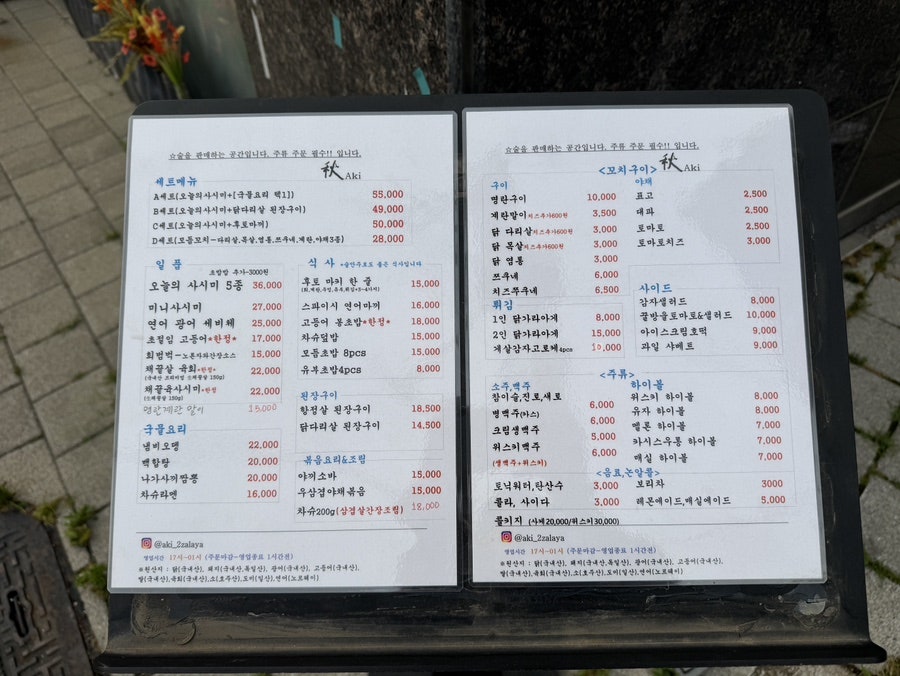 ☆술을 판매하는 공간입니다. 주류 주문 필수!! 입니다.
秋 Aki
세트메뉴
A세트(오늘의사시미+[국물요리 택1]) 55,000
B세트(오늘의사시미+닭다리살 된장구이) 49,000
C세트(오늘의사시미+후토마끼) 50,000
D세트(모듬꼬치-다리살,목살,염통,쯔쿠네,계란,야채3종) 28,000
일품
초밥밥 추가-3000원
오늘의 사시미 5종 36,000
미니사시미 27,000
연어 광어 세비체 25,000
초절임 고등어*한정* 17,000
회범벅-노른자와간장소스 15,000
채끝살 육회*한정 22,000
(국내산 프리미엄 소채끝살 150g)
채끝육사시미*한정 22,000
(소채끝살 150g)
명란계란 말이 15,000
국물요리
냄비오뎅 22,000
백합탕 20,000
나가사끼짬뽕 20,000
차슈라멘 16,000
식사 *술안주로도 좋은 식사입니다
후토 마키 한 줄 15,000
스파이시 연어마끼 16,000
고등어 봉초밥*한정* 18,000
차슈덮밥 15,000
모듬초밥 8pcs 15,000
유부초밥4pcs 8,000
된장구이
항정살 된장구이 18,500
닭다리살 된장구이 14,500
볶음요리&조림
야끼소바 15,000
우삼겹야채볶음 15,000
차슈200g(삼겹살간장조림) 18,000
@aki_2zalaya
영업시간 17시~01시 (주문마감-영업종료 1시간전)
※원산지 : 닭(국내산), 돼지(국내산,독일산), 광어(국내산), 고등어(국내산),
쌀(국내산),육회(국내산),소(호주산),도미(일산),연어(노르웨이)
☆술을 판매하는 공간입니다. 주류 주문 필수!! 입니다.
秋 Aki
<꼬치구이>
구이
명란구이 10,000
계란말이치즈추가600원 3,500
닭 다리살치즈추가600원 3,000
닭 목살치즈추가600원 3,000
닭 염통 3,000
쯔쿠네 6,000
치즈쯔쿠네 6,500
야채
표고 2,500
대파 2,500
토마토 2,500
토마토치즈 3,000
튀김
1인 닭가라아게 8,000
2인 닭가라아게 15,000
게살감자고로케4pcs 10,000
사이드
감자샐러드 8,000
꿀방울토마토&샐러드 10,000
아이스크림호떡 9,000
과일 샤베트 9,000
<주류>
소주,맥주
참이슬,진로,새로 6,000
병맥주(카스) 6,000
크림생맥주 5,000
위스키맥주 6,000
(생맥주+위스키)
하이볼
위스키 하이볼 8,000
유자 하이볼 8,000
멜론 하이볼 7,000
카시스우롱 하이볼 7,000
매실 하이볼 7,000
<음료,논알콜>
토닉워터,탄산수 3,000
콜라, 사이다 3,000
보리차 3000
레몬에이드,매실에이드 5,000
콜키지 (사케20,000/위스키30,000)
@aki_2zalaya
영업시간 17시~01시 (주문마감-영업종료 1시간전)
※원산지 : 닭(국내산), 돼지(국내산,독일산), 광어(국내산), 고등어(국내산),
쌀(국내산),육회(국내산),소(호주산),도미(일산),연어(노르웨이)